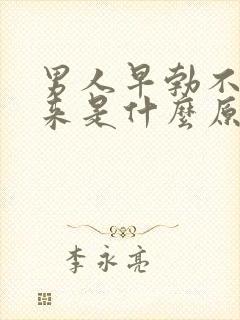 男人早勃不
来是什麼原
李永亮